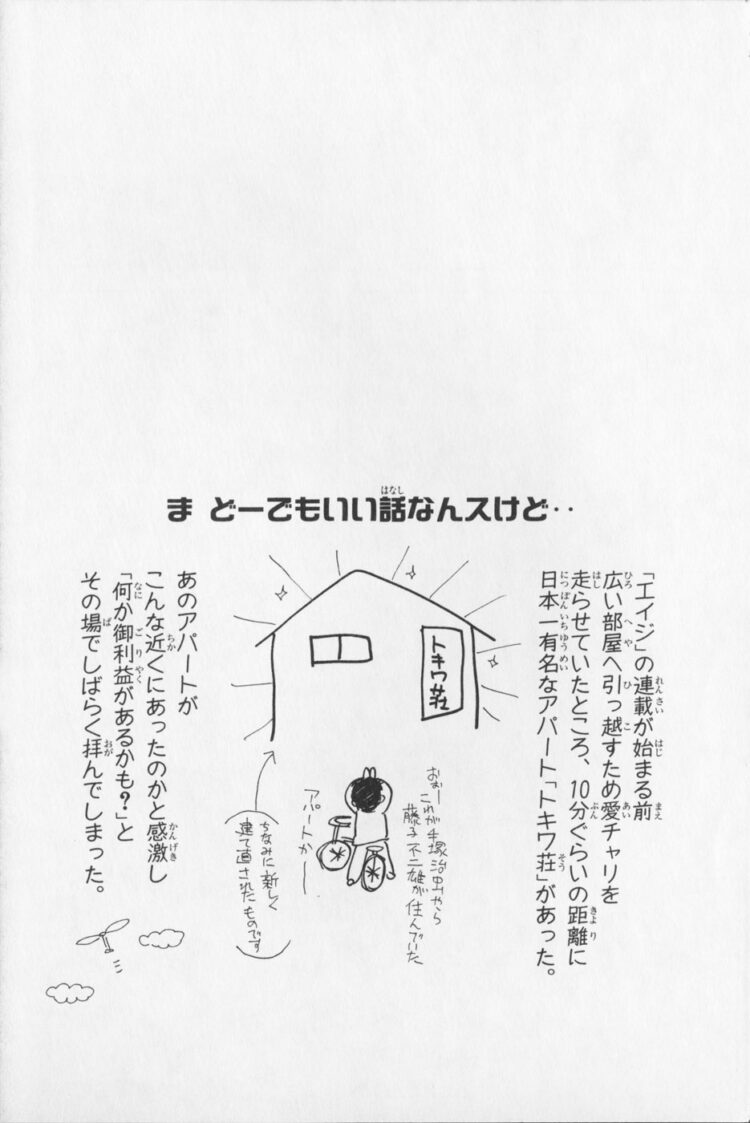 ま どーでもいい話なんスけど‥
「エイジ」の連載が始まる前
広い部屋へ引っ越すため愛チャリを
走らせていたところ、10分ぐらいの距離に
日本一有名なアパート「トキワ荘」があった。
トキワ荘
おぉー
これが手塚治虫やら
藤子不二雄が
住んでいた
アパートかー
ちなみに新しく
建て直されたものです
あのアパートが
こんな近くにあったのかと感激し
「何か御利益があるかも?」と
その場でしばらく拝んでしまった。